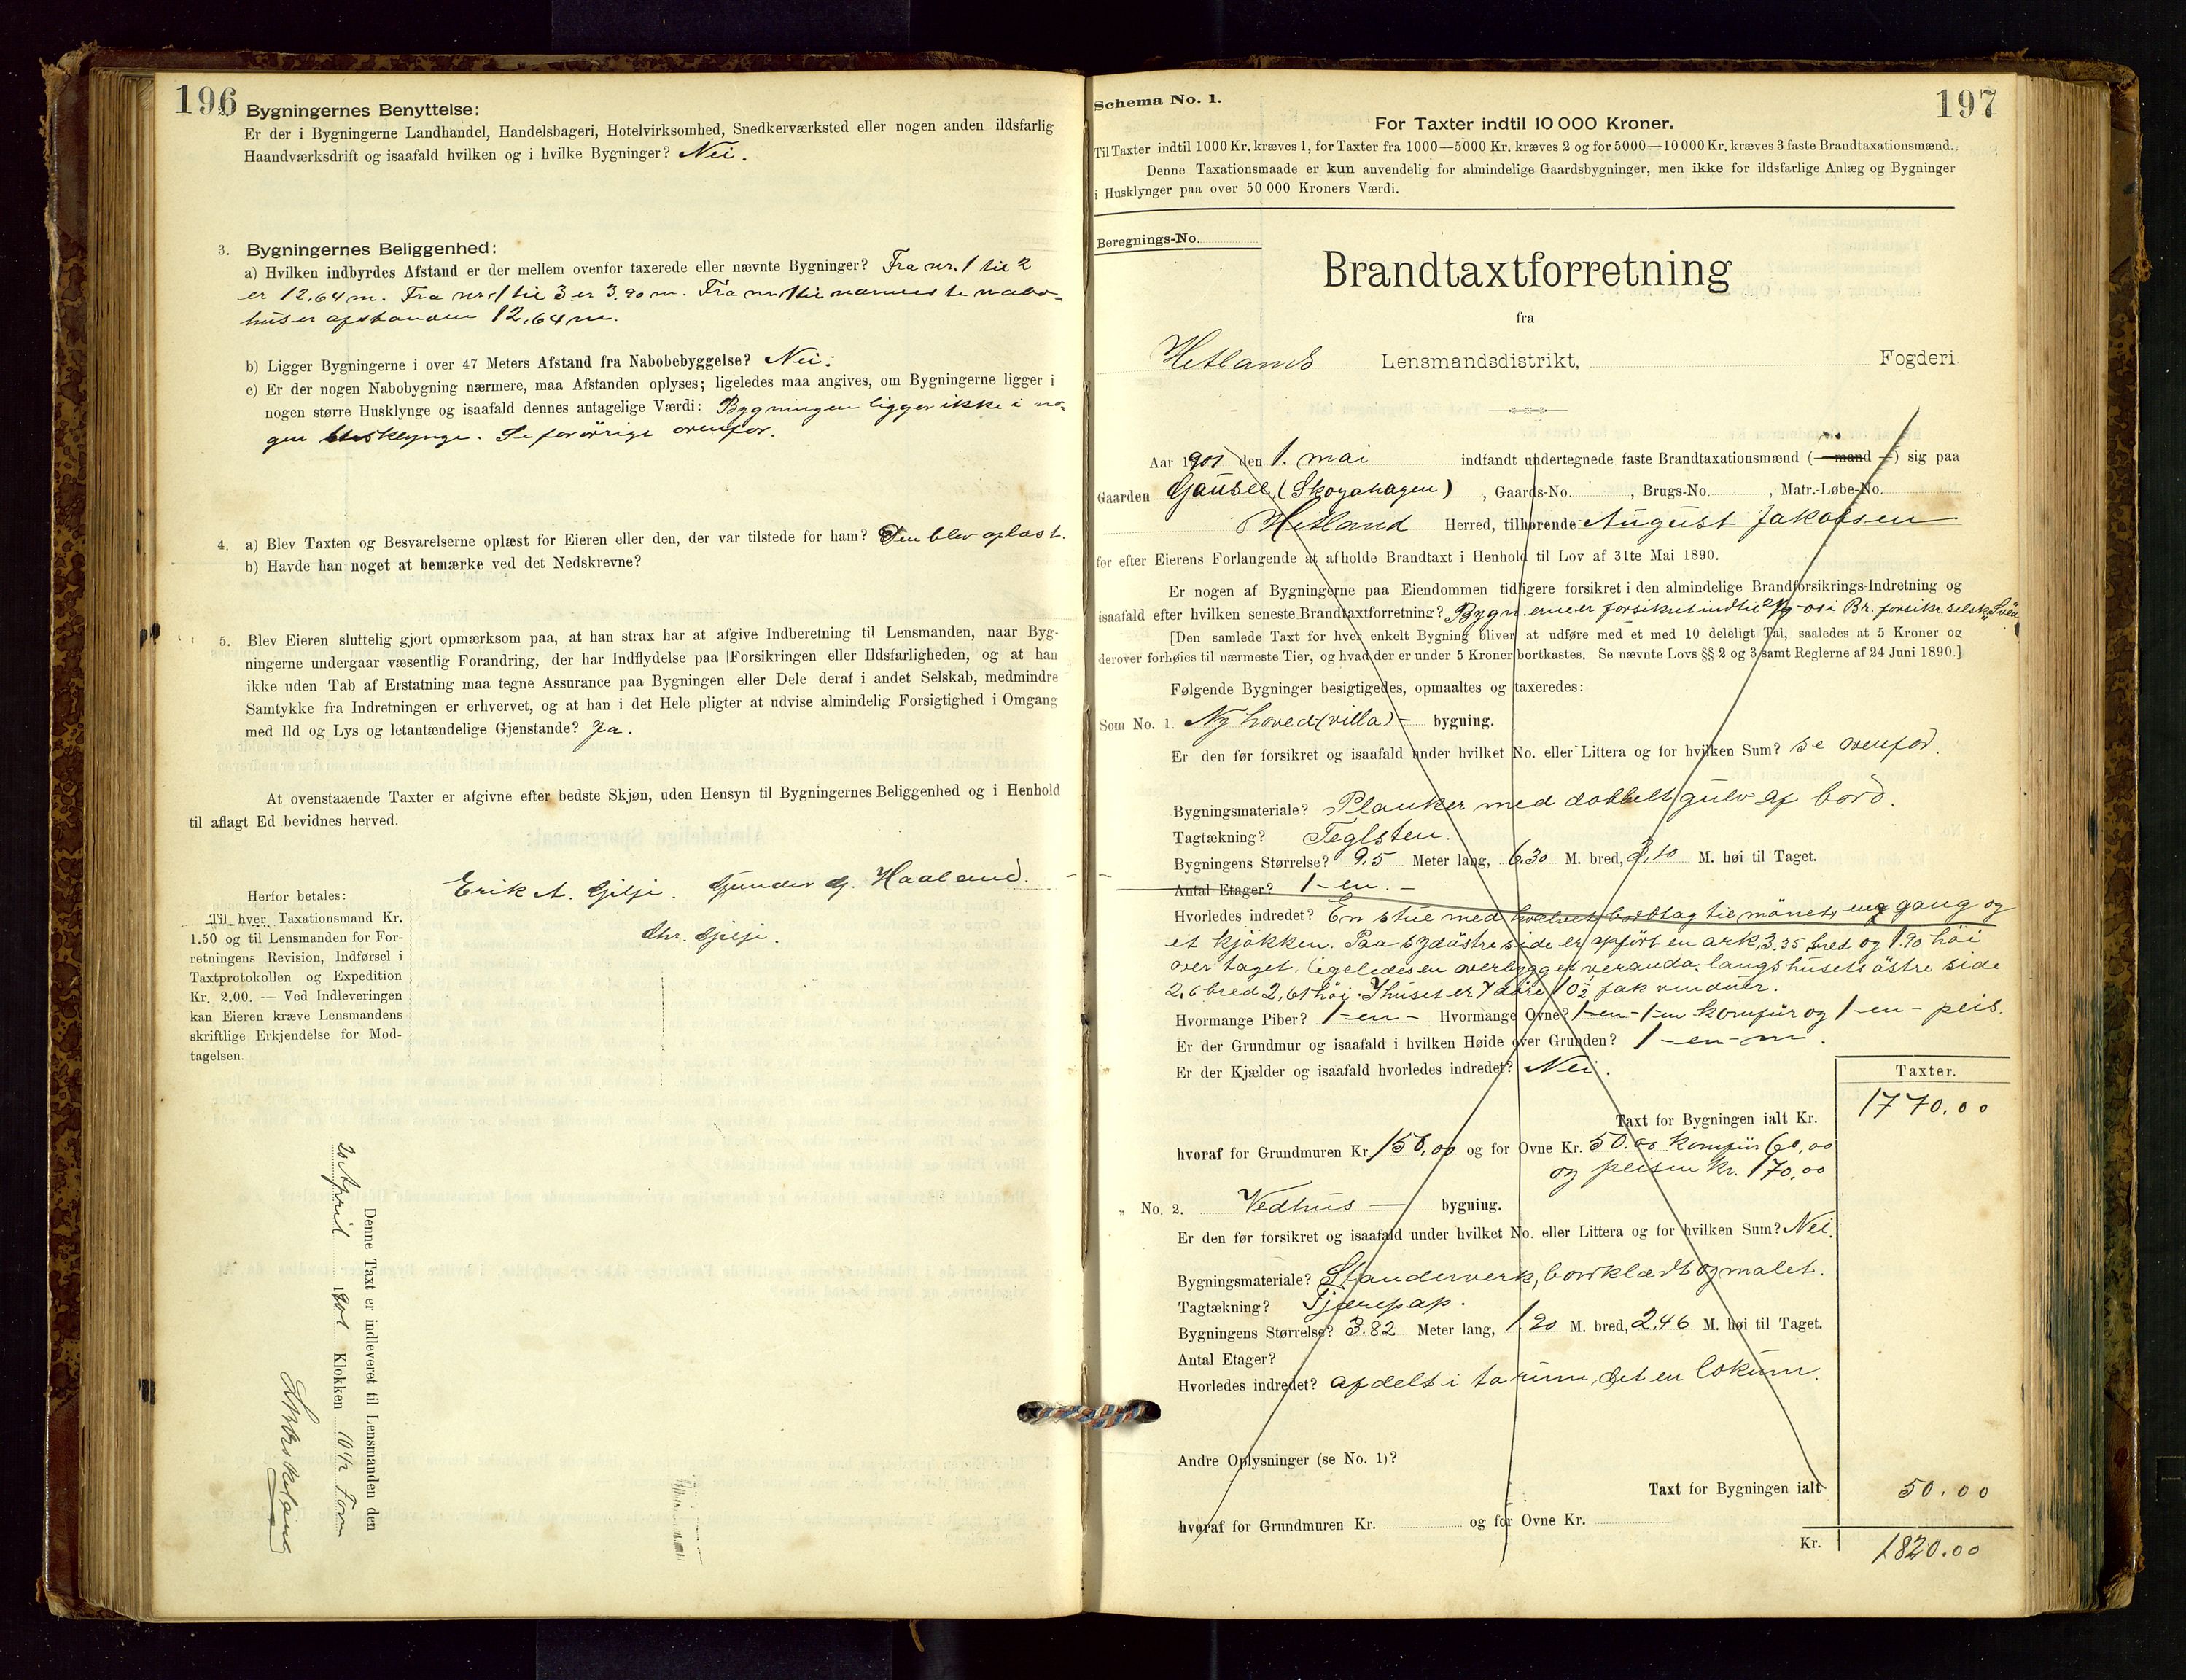 196
Bygningernes Benyttelse:
Er der i Bygningerne Landhandel, Handelsbageri, Hotelvirksomhed, Snedkerværksted eller nogen anden ildsfarlig
Haandværksdrift og isaafald hvilken og i hvilke Bygninger? Nei.
3. Bygningernes Beliggenhed:
a) Hvilken indbyrdes Afstand er der mellem ovenfor taxerede eller nævnte Bygninger? Fra nr. 1 til 2
er 12,64 m. Fra nr 1 til 3 er 3,90 m. Fra nr 1 til nærmeste nabo-
hus er afstanden 12,64 m.
b) Ligger Bygningerne i over 47 Meters Afstand fra Nabobebyggelse? Nei.
c) Er der nogen Nabobygning nærmere, maa Afstanden oplyses; ligeledes maa angives, om Bygningerne ligger i
nogen større Husklynge og isaafald dennes antagelige Værdi: Bygningen ligger ikke i no-
gen husklynge. Se forövrigt ovenfor.
4. a) Blev Taxten og Besvarelserne oplæst for Eieren eller den, der var tilstede for ham? Den blev oplæst.
b) Havde han noget at bemærke ved det Nedskrevne?
5. Blev Eieren sluttelig gjort opmærksom paa, at han strax har at afgive Indberetning til Lensmanden, naar Byg-
ningerne undergaar væsentlig Forandring, der har Indflydelse paa Forsikringen eller Ildsfarligheden, og at han
ikke uden Tab af Erstatning maa tegne Assurance paa Bygningen eller Dele deraf i andet Selskab, medmindre
Samtykke fra Indretningen er erhvervet, og at han i det Hele pligter at udvise almindelig Forsigtighed i Omgang
med Ild og Lys og letantændelige Gjenstande? Ja.
At ovenstaaende Taxter er afgivne efter bedste Skjøn, uden Hensyn til Bygningernes Beliggenhed og i Henhold
til aflagt Ed bevidnes herved.
Erik A. Gilje. Gunder G. Haaland.
Chr. Gilje.
Herfor betales:
Til hver Taxationsmand Kr.
1.50 og til Lensmanden for For-
retningens Revision, Indførsel i
Taxtprotokollen og Expedition
Kr. 2.00. — Ved Indleveringen
kan Eieren kræve Lensmandens
skriftlige Erkjendelse for Mod-
tagelsen.
Denne Taxt er indleveret til Lensmanden den
20 April 1901 Klokken 10 1/2 Form
Schema No. 1.
197
For Taxter indtil 10 000 Kroner.
Til Taxter indtil 1000 Kr. kræves 1, for Taxter fra 1000—5000 Kr. kræves 2 og for 5000—10 000 Kr. kræves 3 faste Brandtaxationsmænd.
Denne Taxationsmaade er kun anvendelig for almindelige Gaardsbygninger, men ikke for ildsfarlige Anlæg og Bygninger
i Husklynger paa over 50 000 Kroners Værdi.
Beregnings-No.
Brandtaxtforretning
fra
Hetlands Lensmandsdistrikt, Fogderi
Aar 1901 den 1. mai indfandt undertegnede faste Brandtaxationsmænd (—mand —) sig paa
Gaarden Gausel (Skogahagen), Gaards-No. , Brugs-No. , Matr.-Løbe-No.
Hetland Herred, tilhørende August Jakobsen
for efter Eierens Forlangende at afholde Brandtaxt i Henhold til Lov af 31te Mai 1890.
Er nogen af Bygningerne paa Eiendommen tidligere forsikret i den almindelige Brandforsikrings-Indretning og
isaafald efter hvilken seneste Brandtaxtforretning? Bygn.erne er forsikret indtil
[Den samlede Taxt for hver enkelt Bygning bliver at udføre med et med 10 deleligt Tal, saaledes at 5 Kroner og
derover forhøies til nærmeste Tier, og hvad der er under 5 Kroner bortkastes. Se nævnte Lovs §§ 2 og 3 samt Reglerne af 24 Juni 1890.]
Følgende Bygninger besigtigedes, opmaaltes og taxeredes:
Som No. 1. Ny hoved(villa)— bygning.
Er den før forsikret og isaafald under hvilket No. eller Littera og for hvilken Sum? se ovenfor.
Bygningsmateriale? Planker med dobbelt gulv af bord.
Tagtækning? Teglsten.
Bygningens Størrelse? 9,5 Meter lang, 6,30 M. bred, 3,10 M. høi til Taget.
Antal Etager? 1—en.—
Hvorledes indredet? En stue med hvelvet bordtag til mönet, eng gang og
et kjökken. Paa sydöstre side er opfört en ark, 3,35 bred og 1,90 höi
over taget, ligeledes en overbygget veranda langs husets östre side
2,6 bred 2,65 höi. I huset er 7 döre 10 1/2 fak vinduer.
Hvormange Piber? 1—en— Hvormange Ovne? 1—en—1—en komfür og 1—en—peis.
Er der Grundmur og isaafald i hvilken Høide over Grunden? 1—en—m.
Er der Kjælder og isaafald hvorledes indredet? Nei.
Taxter.
Taxt for Bygningen ialt Kr. 1770.00
hvoraf for Grundmuren Kr. 150,00 og for Ovne Kr. 50.00 Komfür 60,00
og peisen Kr. 170,00
„ No. 2. Vedhus — bygning.
Er den før forsikret og isaafald under hvilket No. eller Littera og for hvilken Sum? Nei.
Bygningsmateriale? Standerverk, bordklædt og malet.
Tagtækning? Tjærepap.
Bygningens Størrelse? 3.82 Meter lang, 1.90 M. bred, 2,46 M. høi til Taget.
Antal Etager?
Hvorledes indredet? afdelt i to rum, det en lokum.
Andre Oplysninger (se No. 1)?
Taxt for Bygningen ialt 50.00
hvoraf for Grundmuren Kr. og for Ovne Kr.
Kr. 1820.00